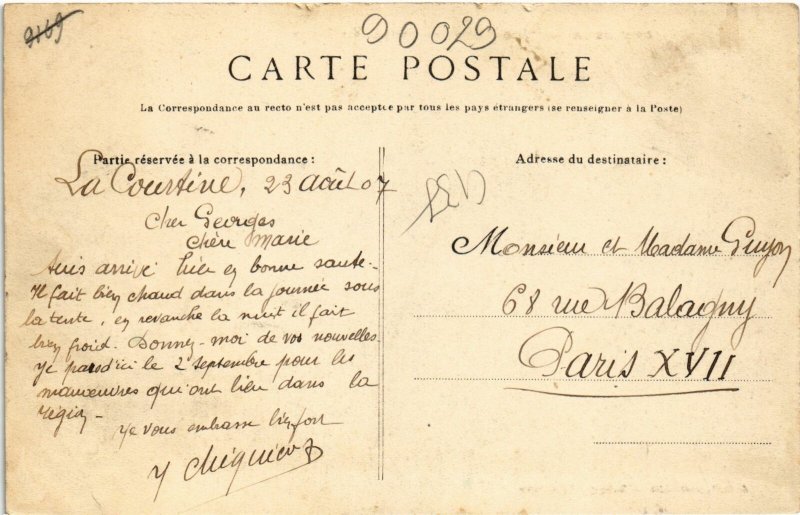 90029
CARTE POSTALE
La Correspondance au recto n'est pas acceptée par tous les pays étrangers (se renseigner à la Poste)
Partie réservée à la correspondance :
La Courtine, 23 août 07
Cher Georges
Chère Marie
Suis arrivé hier en bonne santé.
Il fait bien chaud dans la journée sous
la tente, en revanche la nuit il fait
bien froid. Donnez-moi de vos nouvelles.
Je pars d'ici le 2 septembre pour les
manœuvres qui ont lieu dans la
région -
Je vous embrasse bien fort
Adresse du destinataire :
Monsieur et Madame Guyon
68 rue Balagny
Paris XVII